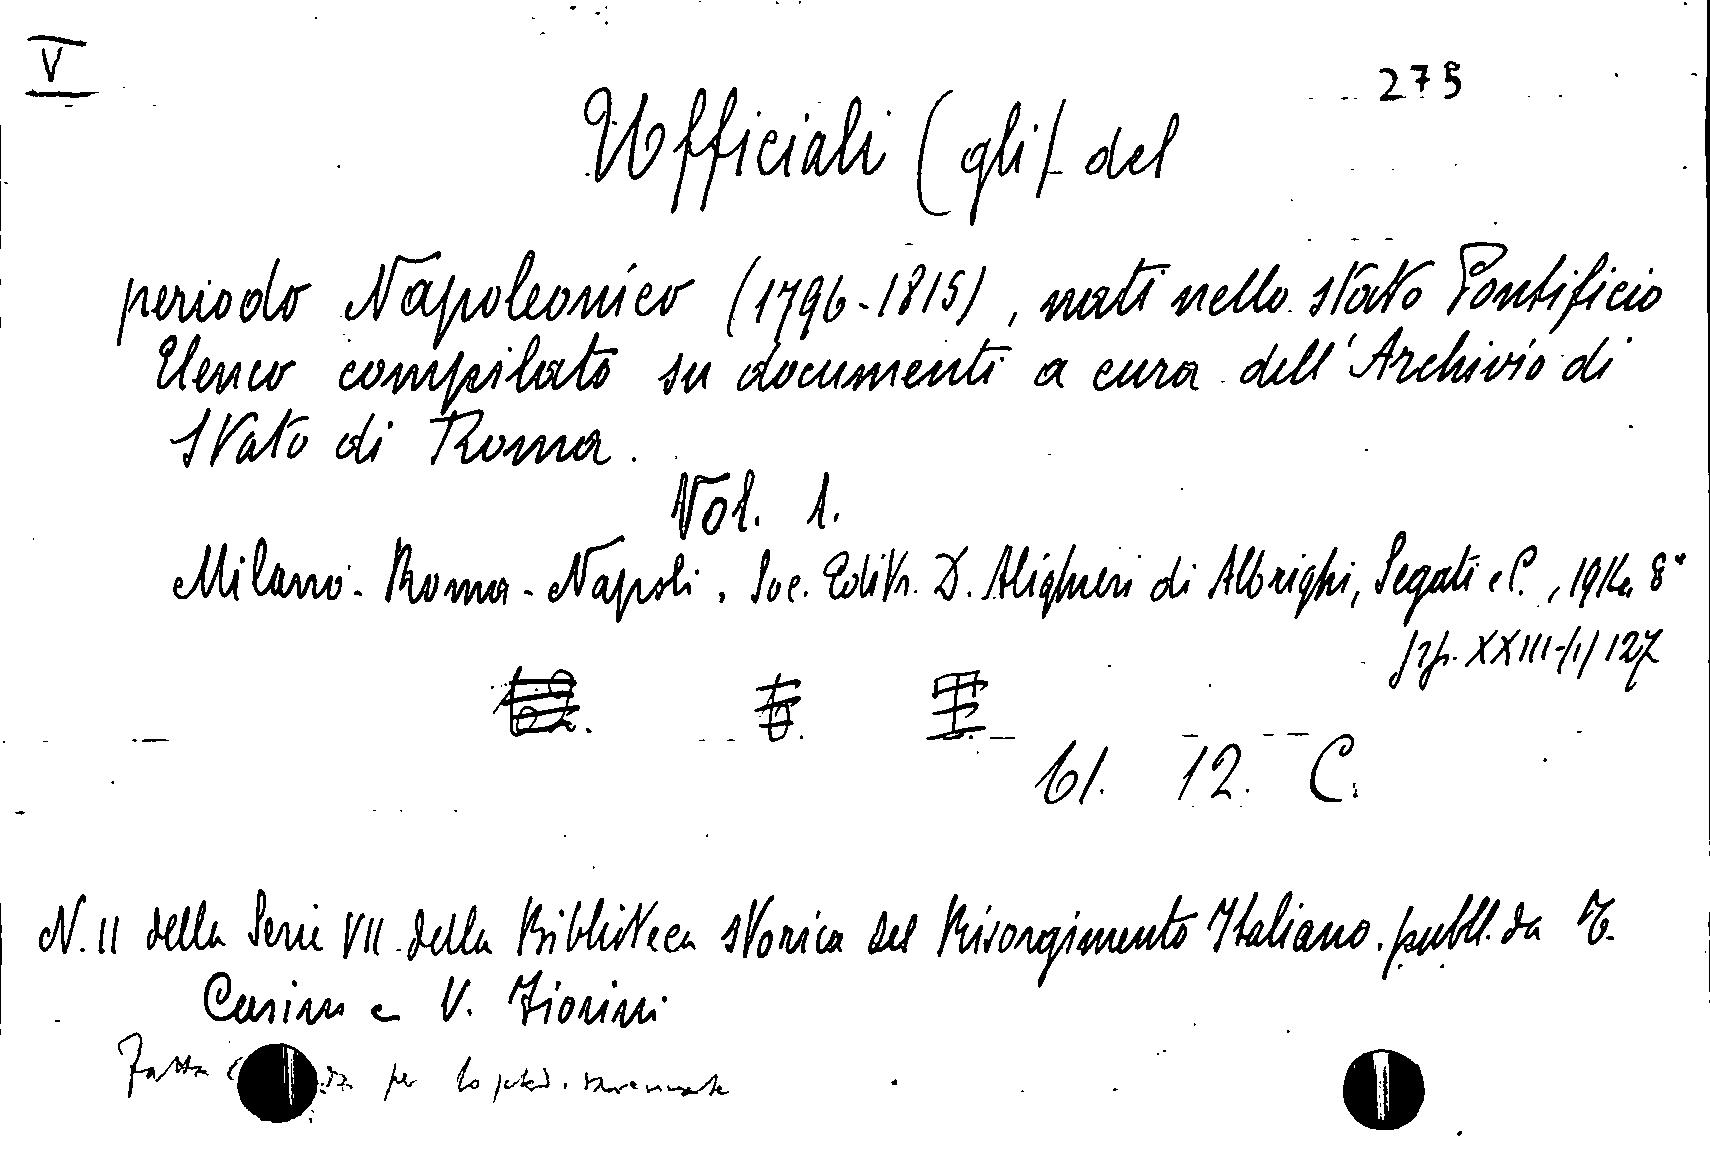 V
275
Ufficiali (gli). del
periodo Napoleonico (1796-1815), nati nello stato Pontificio
Elenco compilato su documenti a cura dell'Archivio di
Stato di Roma.
Vol. 1.
Milano-Roma-Napoli. Soc. Editr. D. Alighieri di Albrighi, Segati e C., 1914. 8°
pp. XXIII-(1) 127
61. 12. C.
N. 11 della Serie VII della Biblioteca storica del Risorgimento Italiano. pubbl. da T.
Casini e V. Fiorini
Fatta per